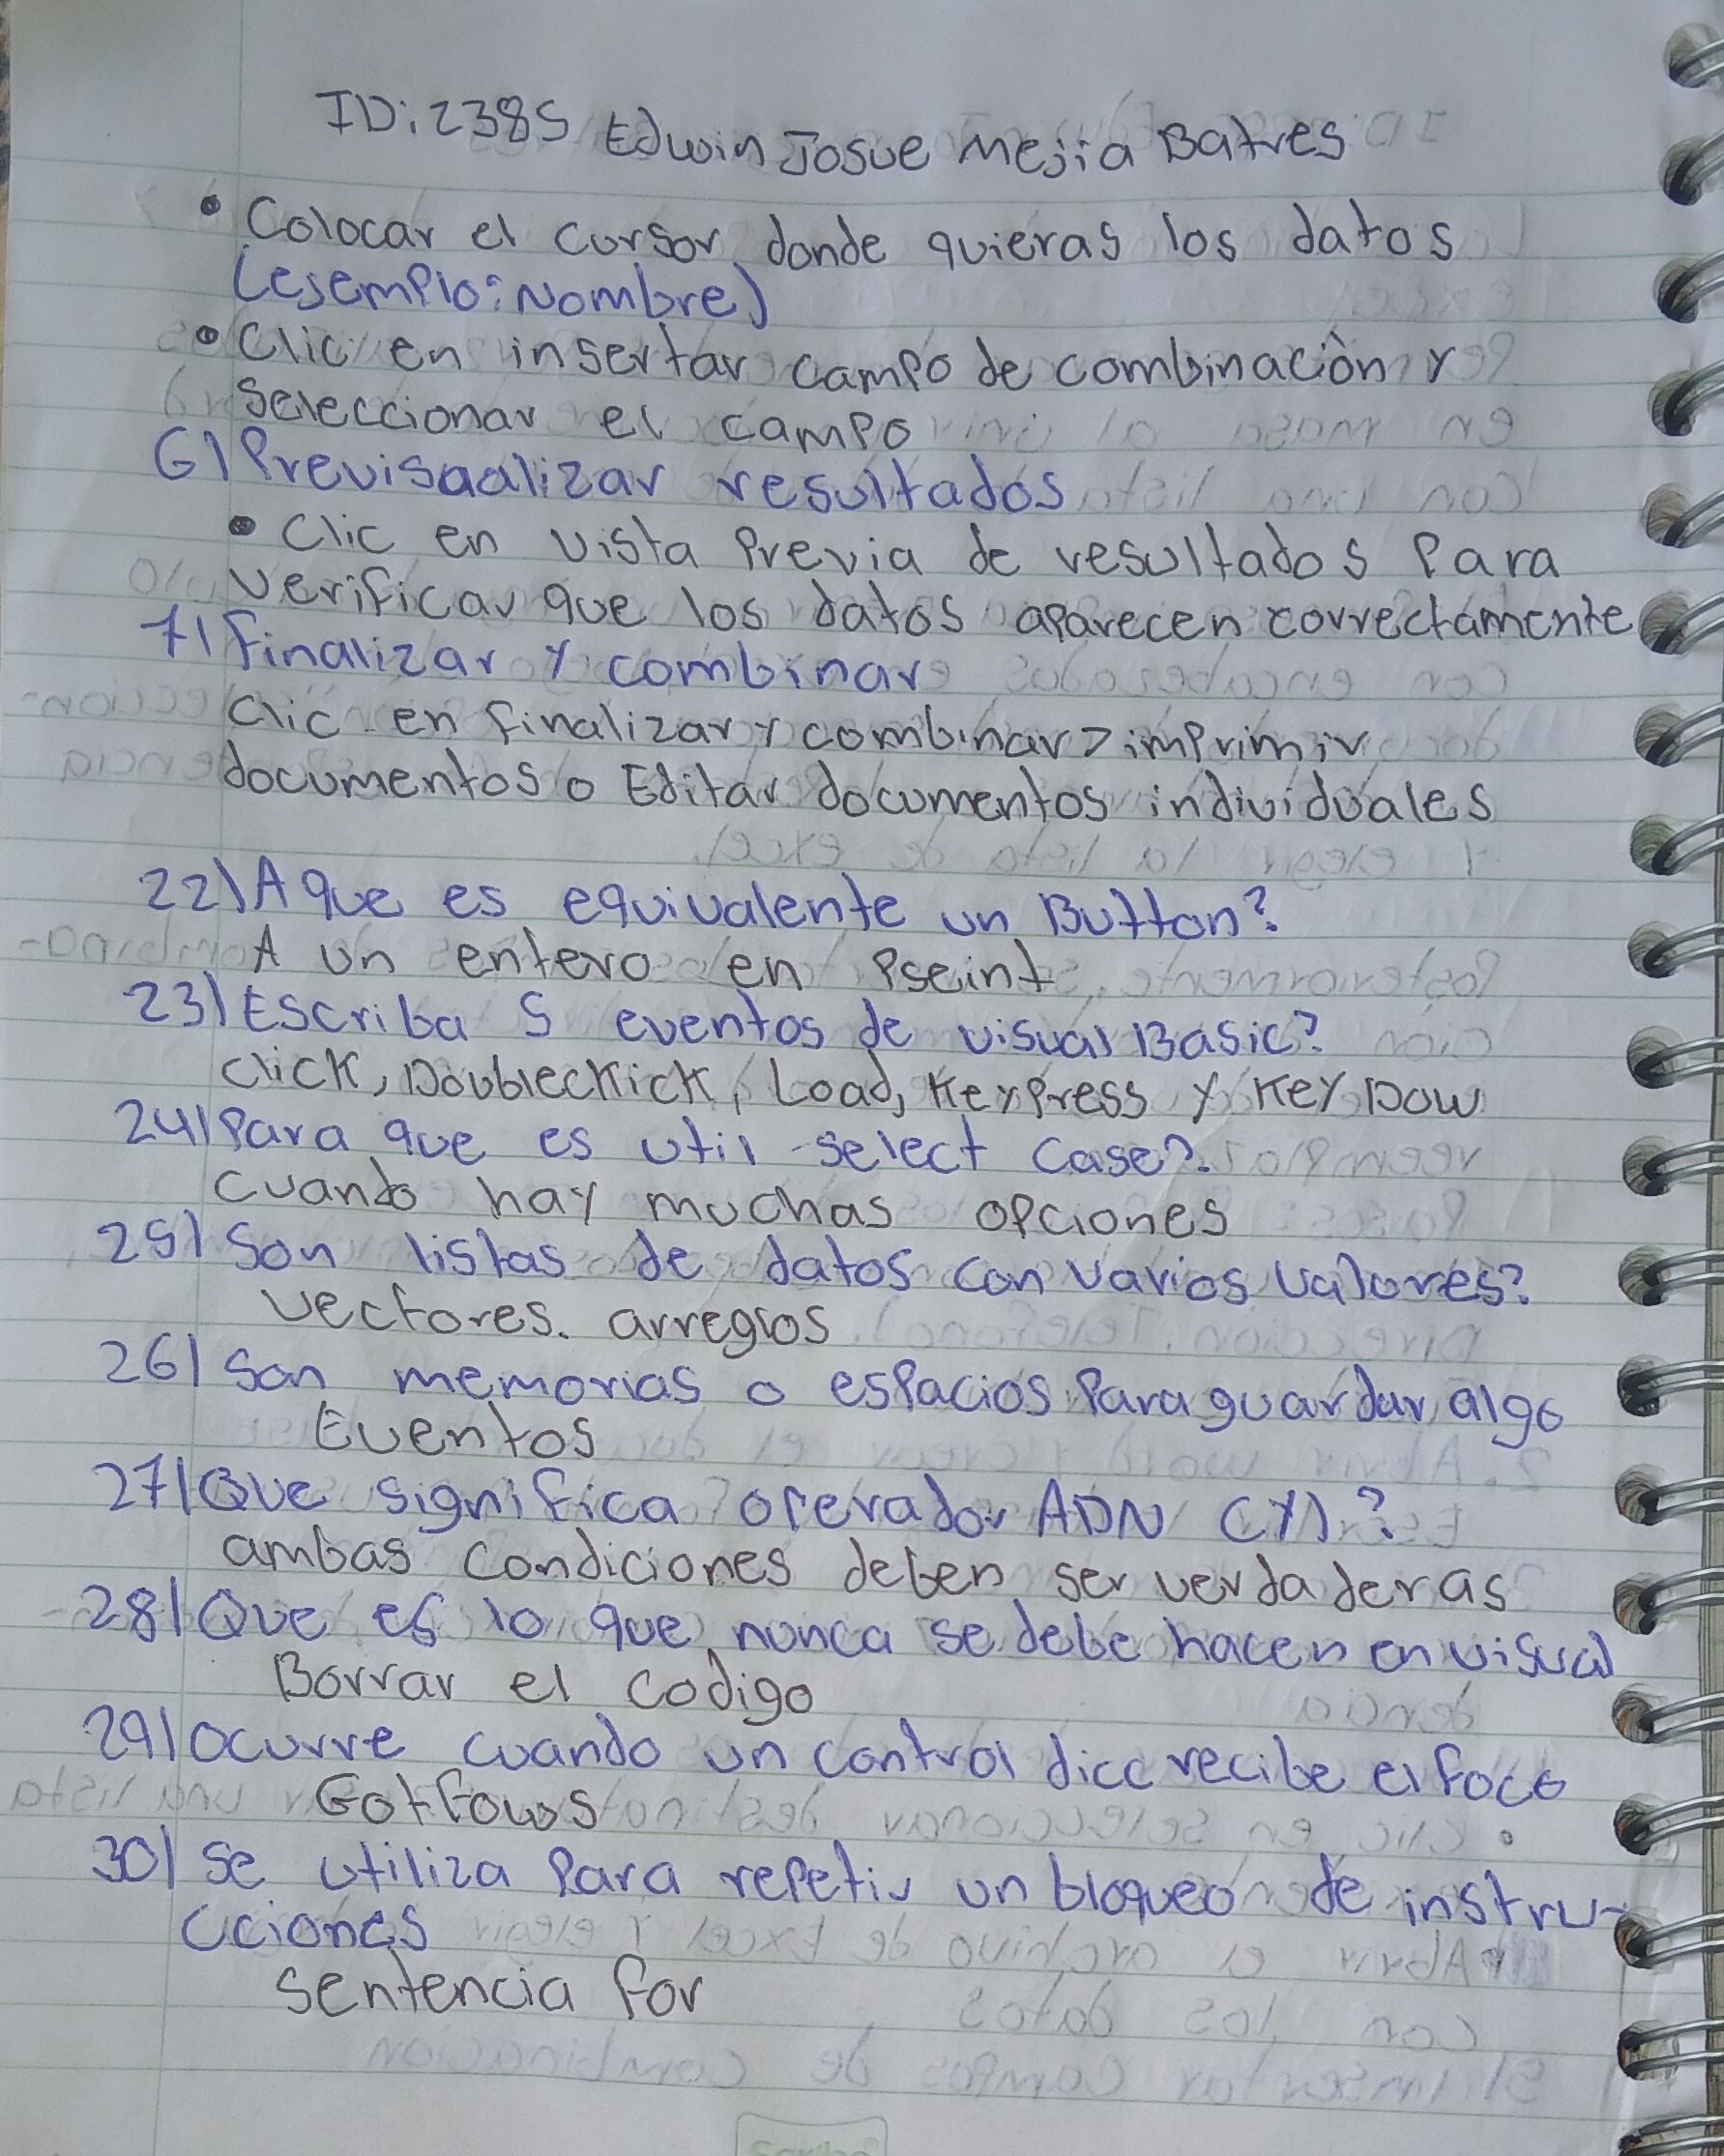 ID: 2385 Edwin Josue Mejia Batres
• Colocar el cursor donde quieras los datos
(esemplo: Nombre)
• Clic en insertar campo de combinación y
seleccionar el campo
6) Previsaalizar resultados
• Clic en vista Previa de resultados Para
verificar que los datos aparecen correctamente
7) Finalizar y combinar
Clic en finalizar y combinar > imprimir
documentos o Editar documentos individuales
22) A que es equivalente un Button?
A un entero en Pseint
23) Escriba 5 eventos de visual Basic?
Click, Doubleckick, Load, KeyPress y Key Dow
24) Para que es util select Case?
Cuando hay muchas opciones
25) Son listas de datos con varios valores?
Vectores. arreglos
26) Son memorias o espacios Para guardar algo
Eventos
27) Que significa operador ADN (Y)?
ambas condiciones deben ser verdaderas
28) Que es lo que nunca se debe hacen en visual
Borrar el codigo
29) Ocurre cuando un control dicc recibe el foco
Gotfows
30) Se utiliza Para repetir un bloqueo de instru-
cciones
sentencia for